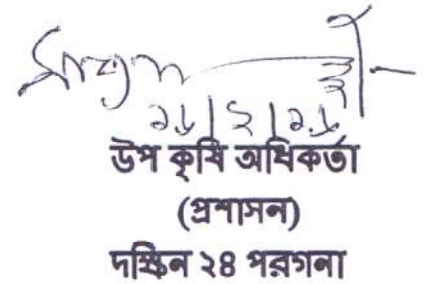 ১৬|২|১৬
উপ কৃষি অধিকর্তা
(প্রশাসন)
দক্ষিন ২৪ পরগনা